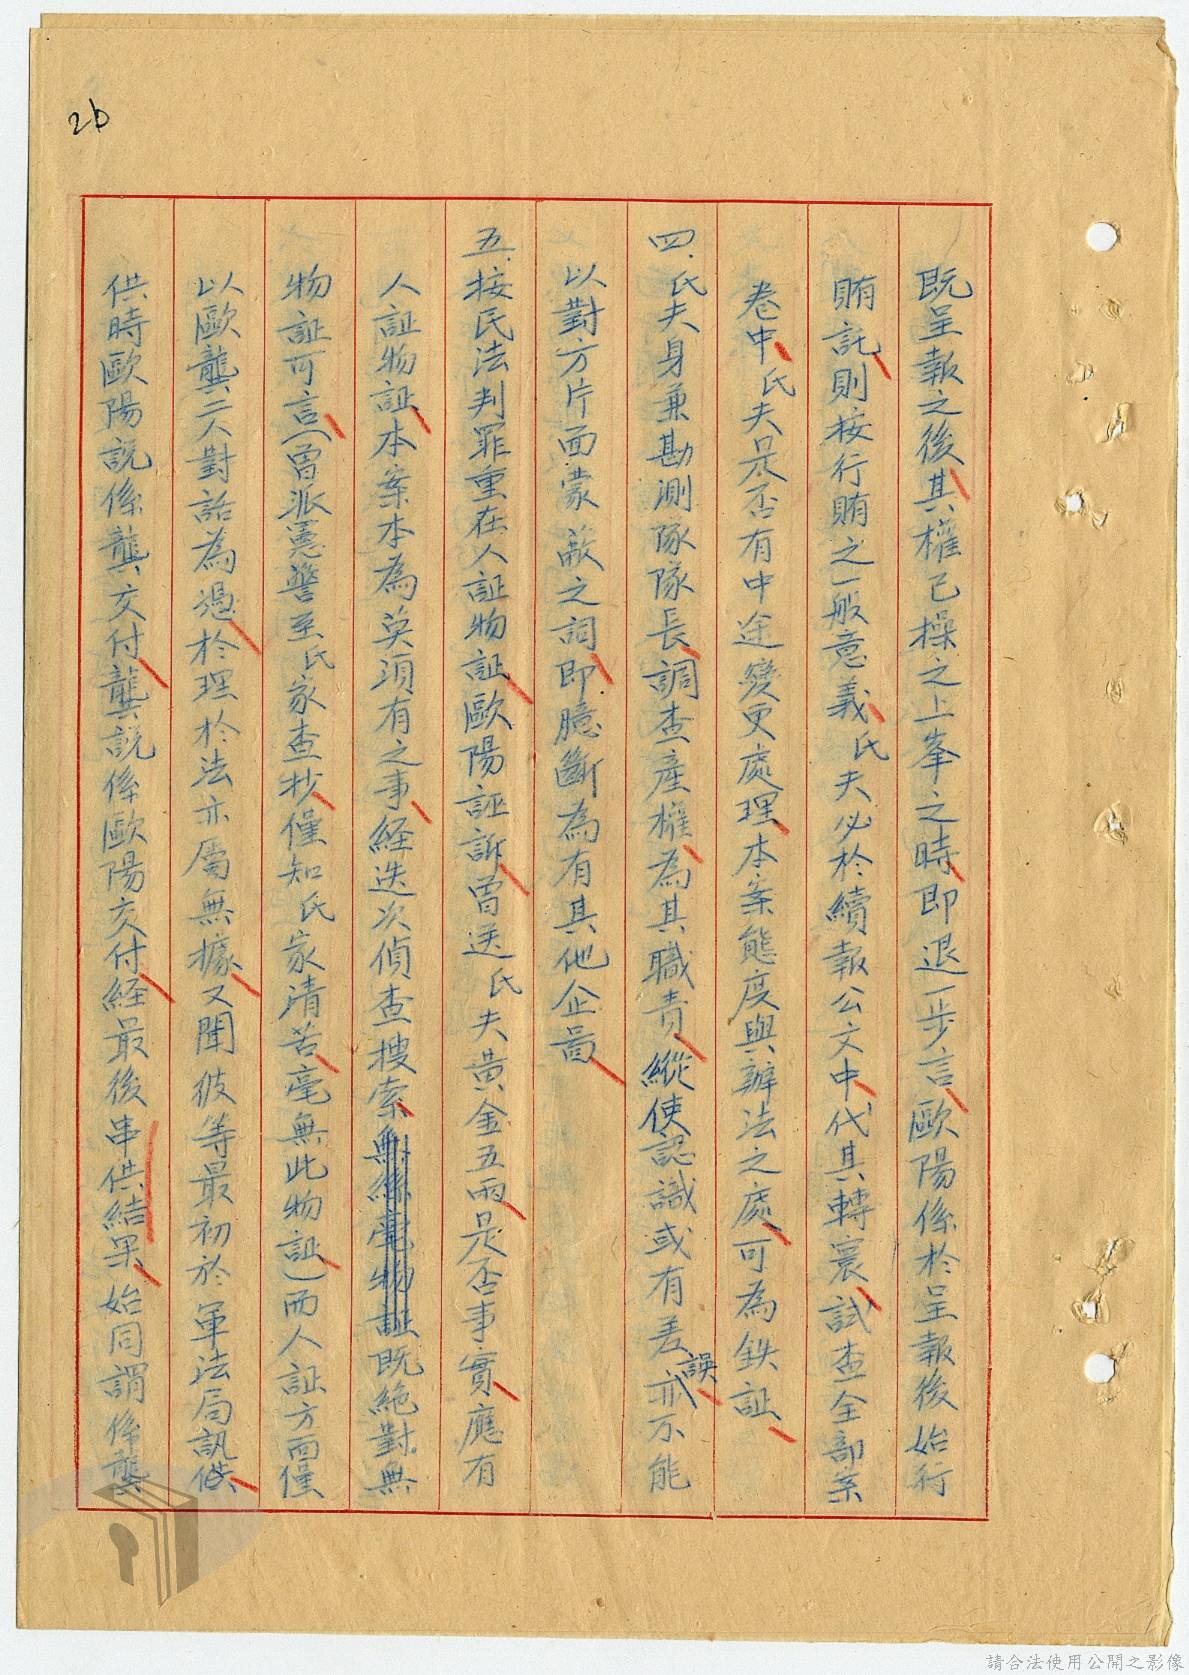 26
既呈報之後其權已操之上峯之時即退一步言歐陽係於呈報後始行
賄託則按行賄之一般意義氏夫必於續報公文中代其轉寰試查全部案
卷中氏夫是否有中途變更處理本案態度與辦法之處可為鉄証
四、氏夫身兼勘測隊隊長調查產權為其職責縱使認識或有差誤亦不能
以對方片面蒙蔽之詞即臆斷為有其他企啚
五、按民法判罪重在人証物証歐陽誣訴曾送氏夫黃金五兩是否事實應有
人証物証本案本為莫須有之事経迭次偵查搜索無絲毫物証既絶對無
物証可言(曾派憲警至氏家查抄僅知氏家清苦毫無此物証)而人証方面僅
以歐龔二人對話為憑於理於法亦屬無據又聞彼等最初於軍法局訊供
供時歐陽説係龔交付龔説係歐陽交付経最後串供結果始同謂係龔
請合法使用公開之影像